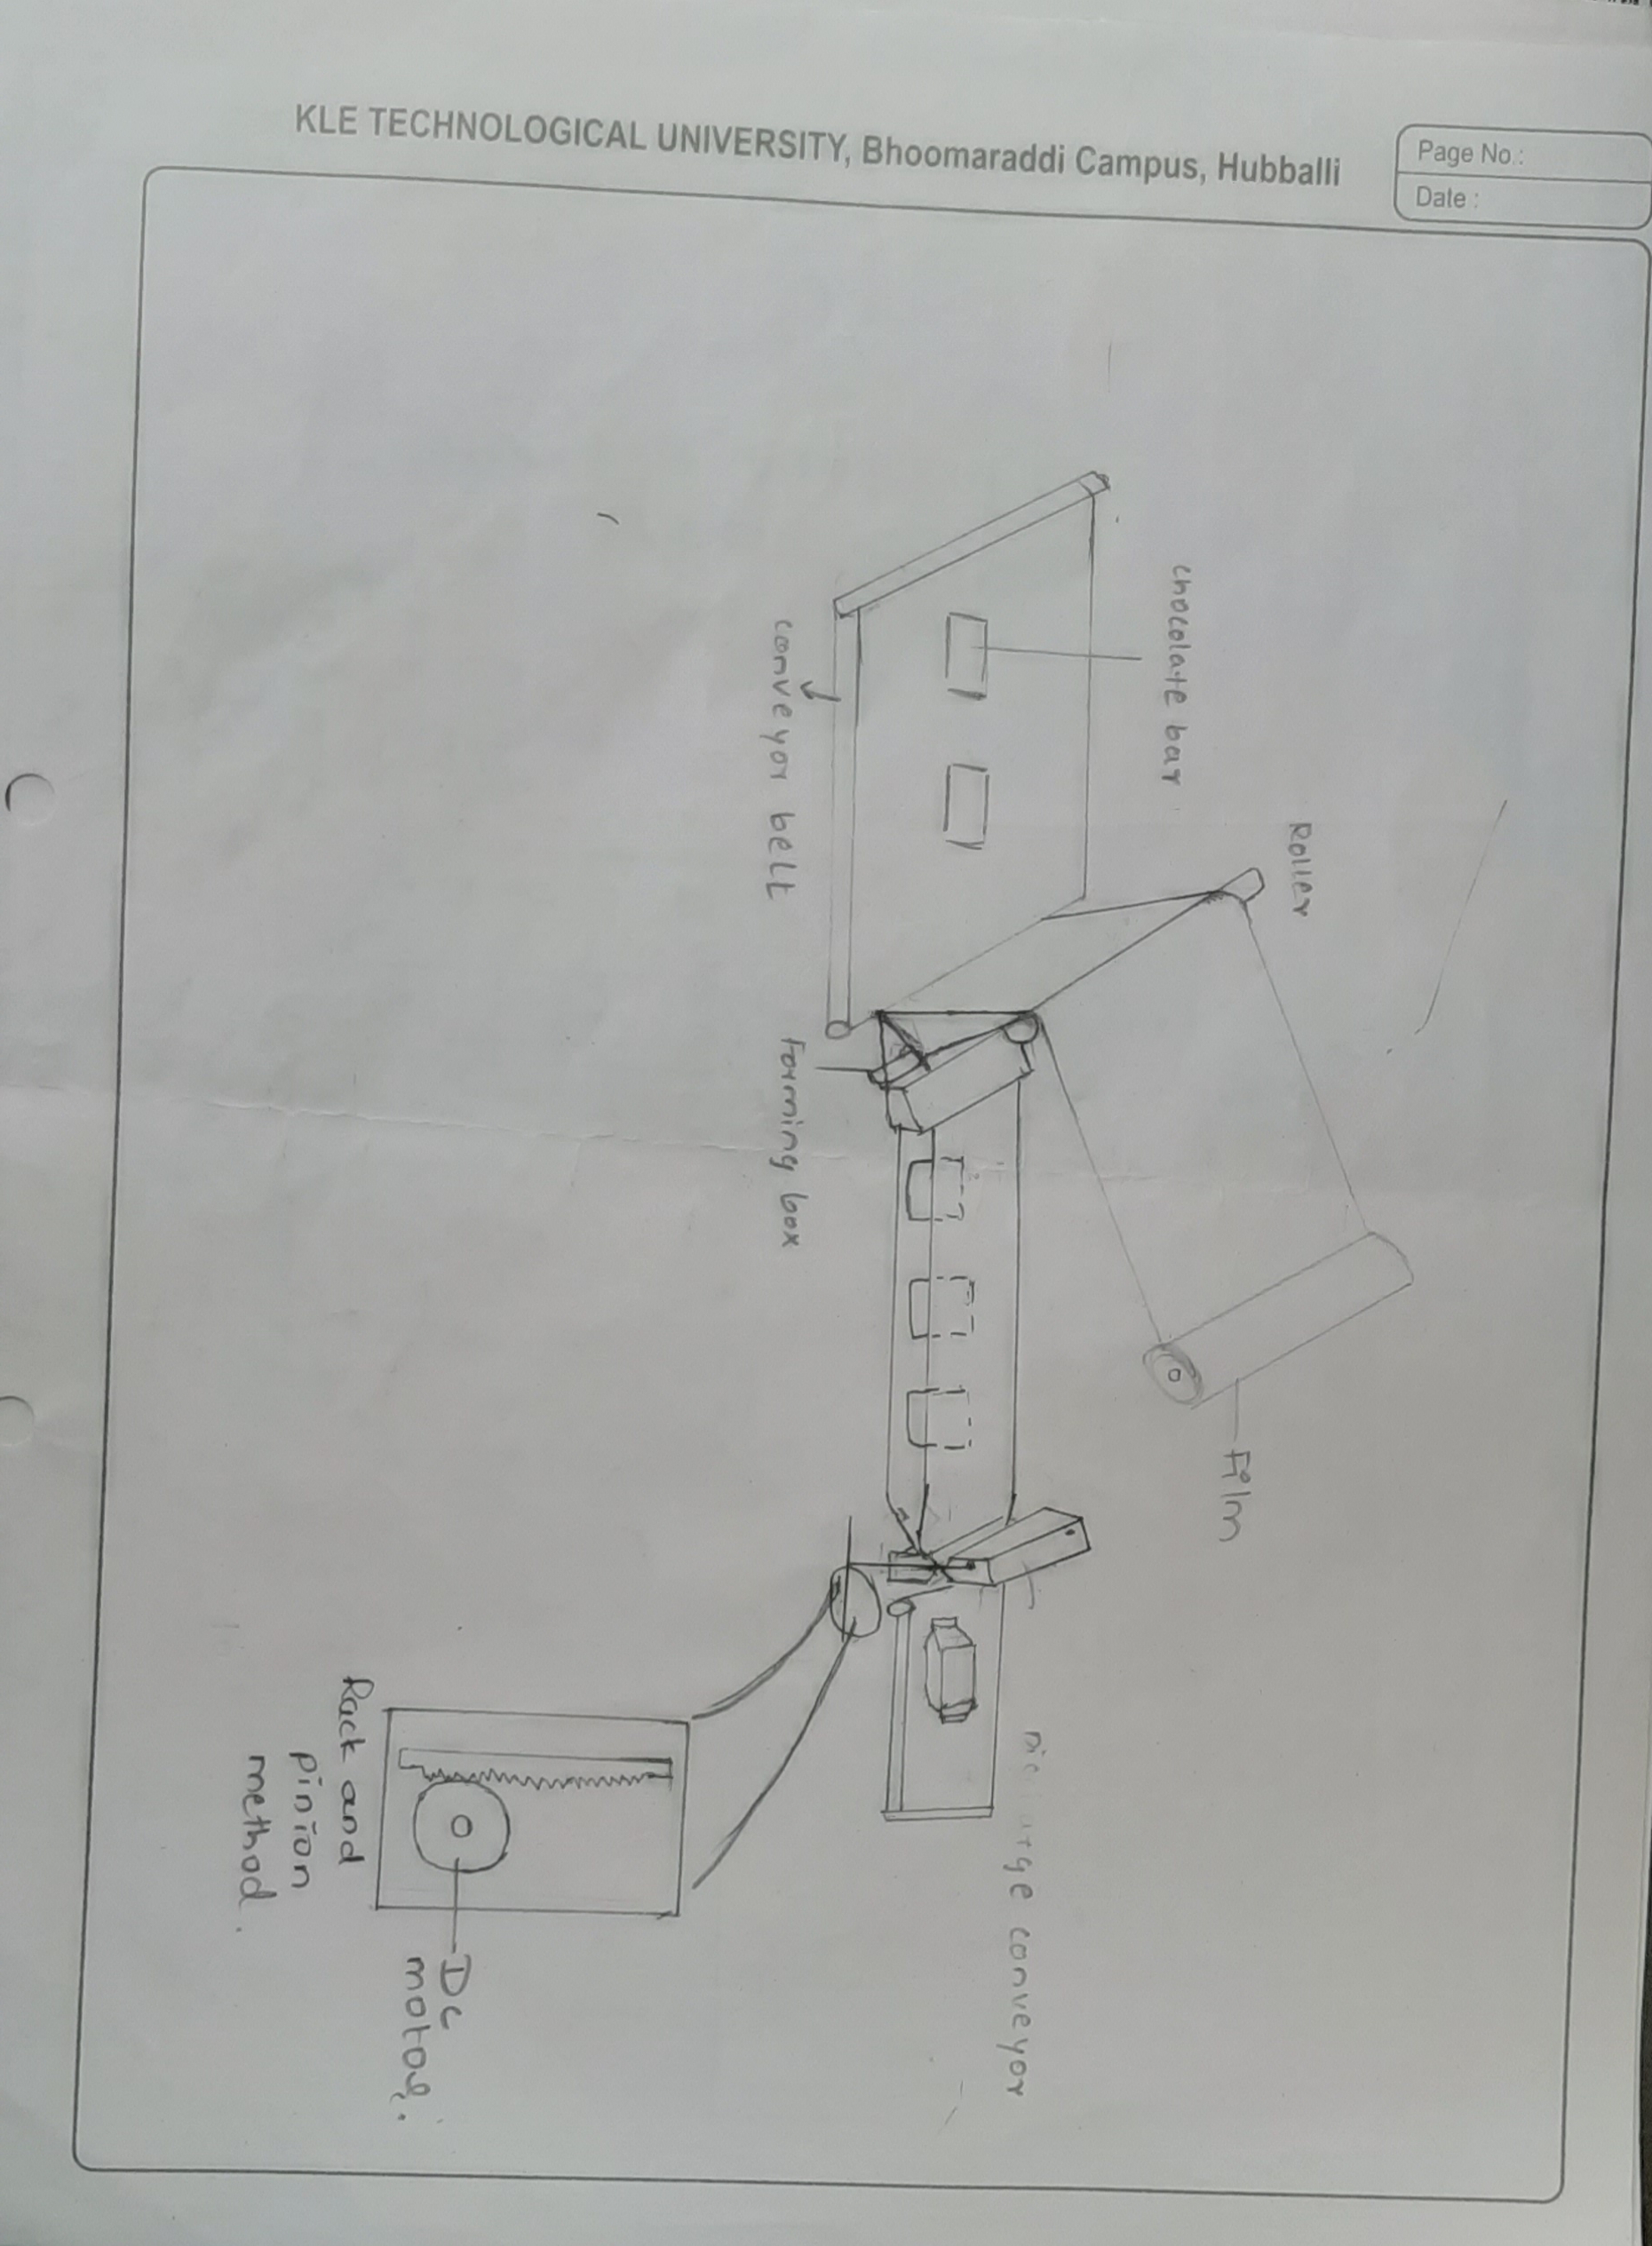 KLE TECHNOLOGICAL UNIVERSITY, Bhoomaraddi Campus, Hubballi
Page No.:
Date :
chocolate bar
Roller
conveyor belt
Forming box
Film
conveyor
Rack and
pinion
method.
DC
motor.